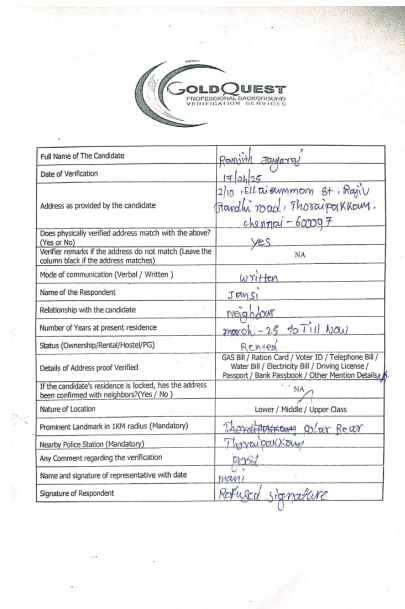 GOLDQUEST
PROFESSIONAL BACKGROUND
VERIFICATION SERVICES
Full Name of The Candidate
Ranjith Jayaraj
Date of Verification
17/04/25
Address as provided by the candidate
2/10, Ellaiammom St, Rajiv
Gandhi road, Thoraipakkam,
chennai - 600097
Does physically verified address match with the above?
(Yes or No)
yes
Verifier remarks if the address do not match (Leave the
column black if the address matches)
NA
Mode of communication (Verbal / Written )
written
Name of the Respondent
Jansi
Relationship with the candidate
Neighbour
Number of Years at present residence
march - 25 to Till Now
Status (Ownership/Rental/Hostel/PG)
Rented
Details of Address proof Verified
GAS Bill / Ration Card / Voter ID / Telephone Bill /
Water Bill / Electricity Bill / Driving License /
Passport / Bank Passbook / Other Mention Details
If the candidate's residence is locked, has the address
been confirmed with neighbors?(Yes / No )
NA
Nature of Location
Lower / Middle / Upper Class
Prominent Landmark in 1KM radius (Mandatory)
Polar Bear
Nearby Police Station (Mandatory)
Thoraipakkam
Any Comment regarding the verification
good
Name and signature of representative with date
mani
Signature of Respondent
Refused signature